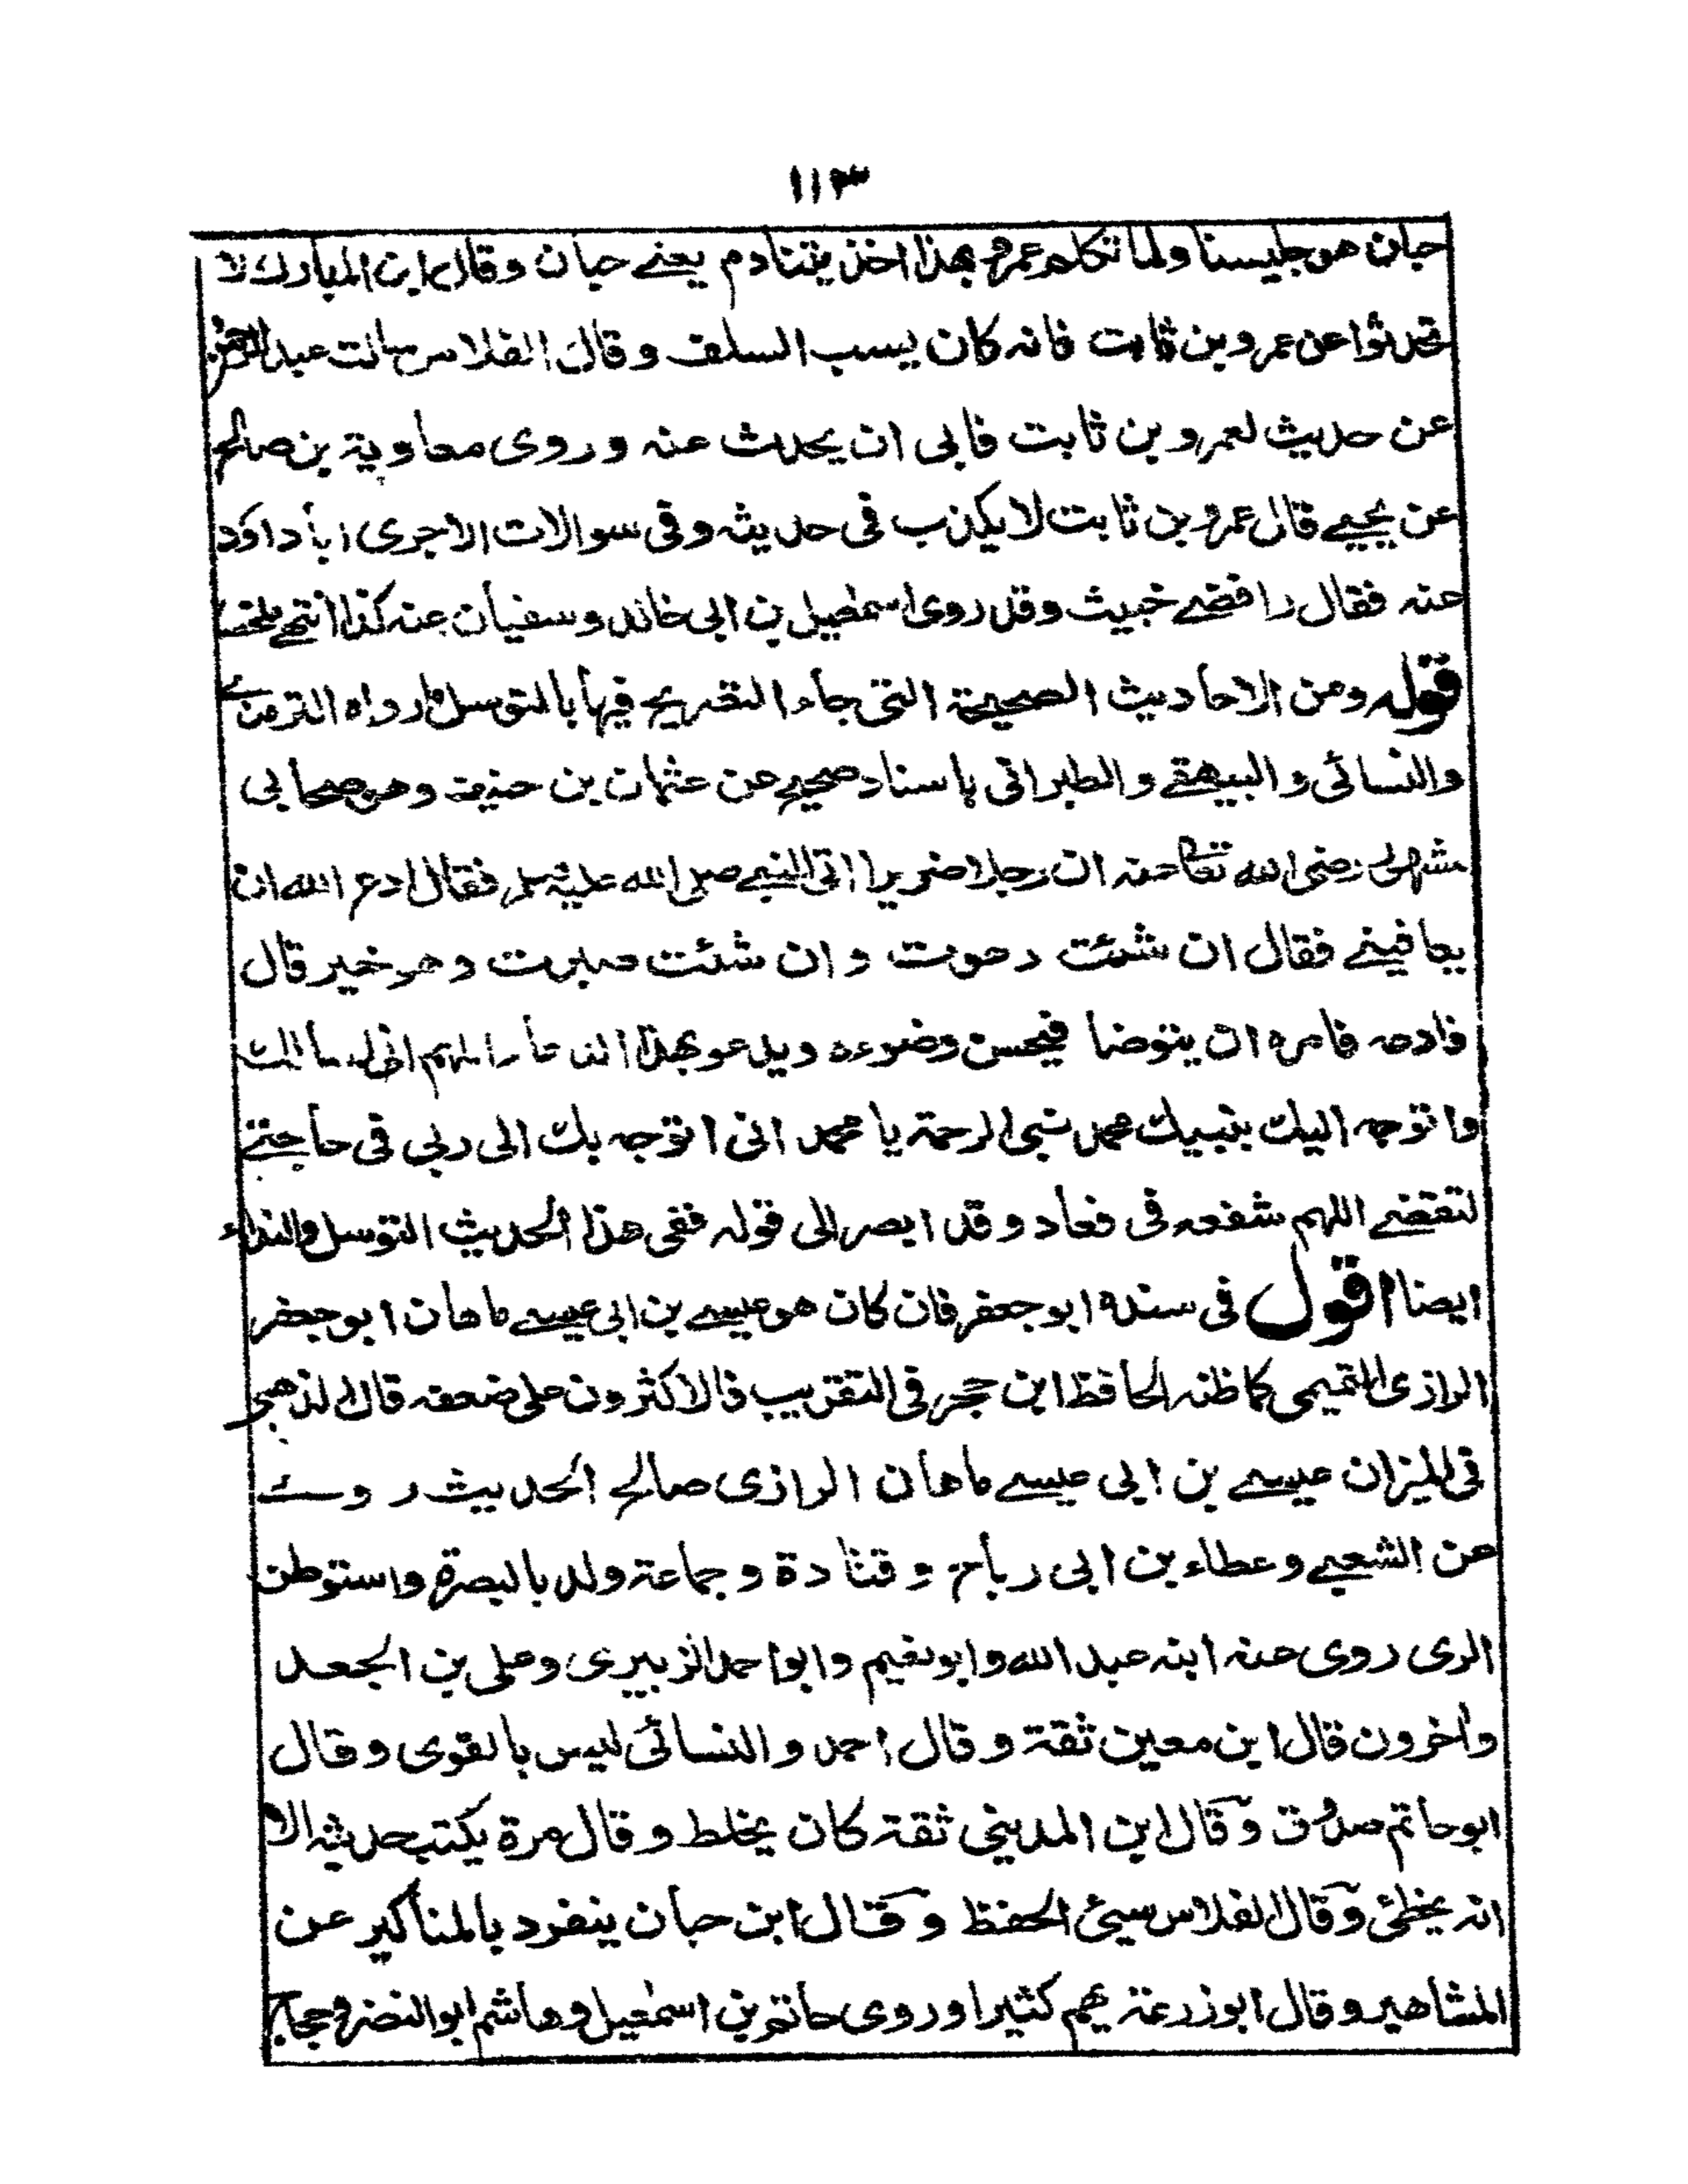 ١١٣
حبان هو جليسنا ولما تكلم عمرو بهذا اخذ يتنادم يعني حبان وقال ابن المبارك لا
تحدثوا عن عمرو بن ثابت فانه كان يسب السلف وقال الفلاس سالت عبد الرحمن
عن حديث لعمرو بن ثابت فابى ان يحدث عنه وروى معاوية بن صالح
عن يحيى قال عمرو بن ثابت لا يكذب فى حديثه وفى سوالات الاجرى ابا داود
عنه فقال رافضى خبيث وقد روى اسمعيل بن ابى خالد وسفيان عنه كذا انتهى ملخصا
قوله ومن الاحاديث الصحيحة التى جاء التصريح فيها بالتوسل ما رواه الترمذى
والنسائى والبيهقى والطبرانى باسناد صحيح عن عثمان بن حنيف وهو صحابى
مشهور رضى الله تعالى عنه ان رجلا ضريرا اتى النبى صلى الله عليه وسلم فقال ادع الله ان
يعافينى فقال ان شئت دعوت وان شئت صبرت وهو خير قال
فادعه فامره ان يتوضا فيحسن وضوءه ويدعو بهذا الدعاء اللهم انى اسالك
واتوجه اليك بنبيك محمد نبى الرحمة يا محمد انى اتوجه بك الى ربى فى حاجتى
لتقضى اللهم شفعه فى فعاد وقد ابصر الى قوله ففى هذا الحديث التوسل والنداء
ايضا اقول فى سنده ابو جعفر فان كان هو عيسى بن ابى عيسى ماهان ابو جعفر
الرازى التميمى كما ظنه الحافظ ابن حجر فى التقريب فالاكثرون على ضعفه قال الذهبى
فى الميزان عيسى بن ابى عيسى ماهان الرازى صالح الحديث روى
عن الشعبى وعطاء بن ابى رباح وقتادة وجماعة ولد بالبصرة واستوطن
الرى روى عنه ابنه عبد الله وابو نعيم وابو احمد الزبيرى وعلى بن الجعد
واخرون قال ابن معين ثقة وقال احمد والنسائى ليس بالقوى وقال
ابو حاتم صدوق وقال ابن المدينى ثقة كان يخلط وقال مرة يكتب حديثه الا
انه يخطئ وقال الفلاس سيئ الحفظ وقال ابن حبان ينفرد بالمناكير عن
المشاهير وقال ابو زرعة يهم كثيرا وروى حاتم بن اسمعيل وهاشم ابو النضر وحجاج